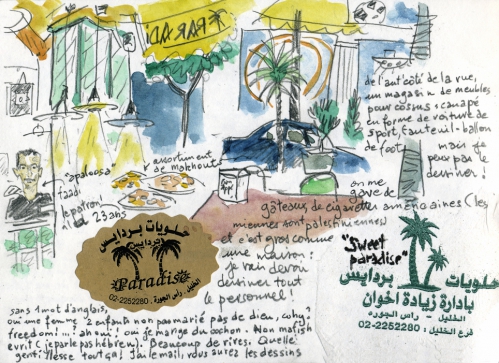 PARADI
de l'aut' côté de la rue,
un magasin de meubles
pour cossus : canapé
en forme de voiture de
sport, fauteuil-ballon
de foot
mais je
peux pas le
dessiner !
"apaloosa"
assortiment
de
faadi
le patron
23 ans
on me
gave de
gâteaux, de cigarettes américaines (les
miennes sont palestiniennes)
et c'est gros comme
une maison :
je vais devoir
dessiner tout
le personnel !
حلويات بردايس
بردايس
Paradise
الخليل . رأس الجورة : 2252280-02
"Sweet
paradise"
حلويات بردايس
بادارة زيادة اخوان
الخليل - راس الجورة
فرع الخليل : 2252280-02
sans 1 mot d'anglais,
oui une femme 2 enfants non pas marié pas de dieu,
freedom! ah oui, oui je mange du cochon. Non
(je parle pas hébreu). Beaucoup de rires. Quelle
gentillesse tout ça! J'ai l'email, vous aurez les dessins